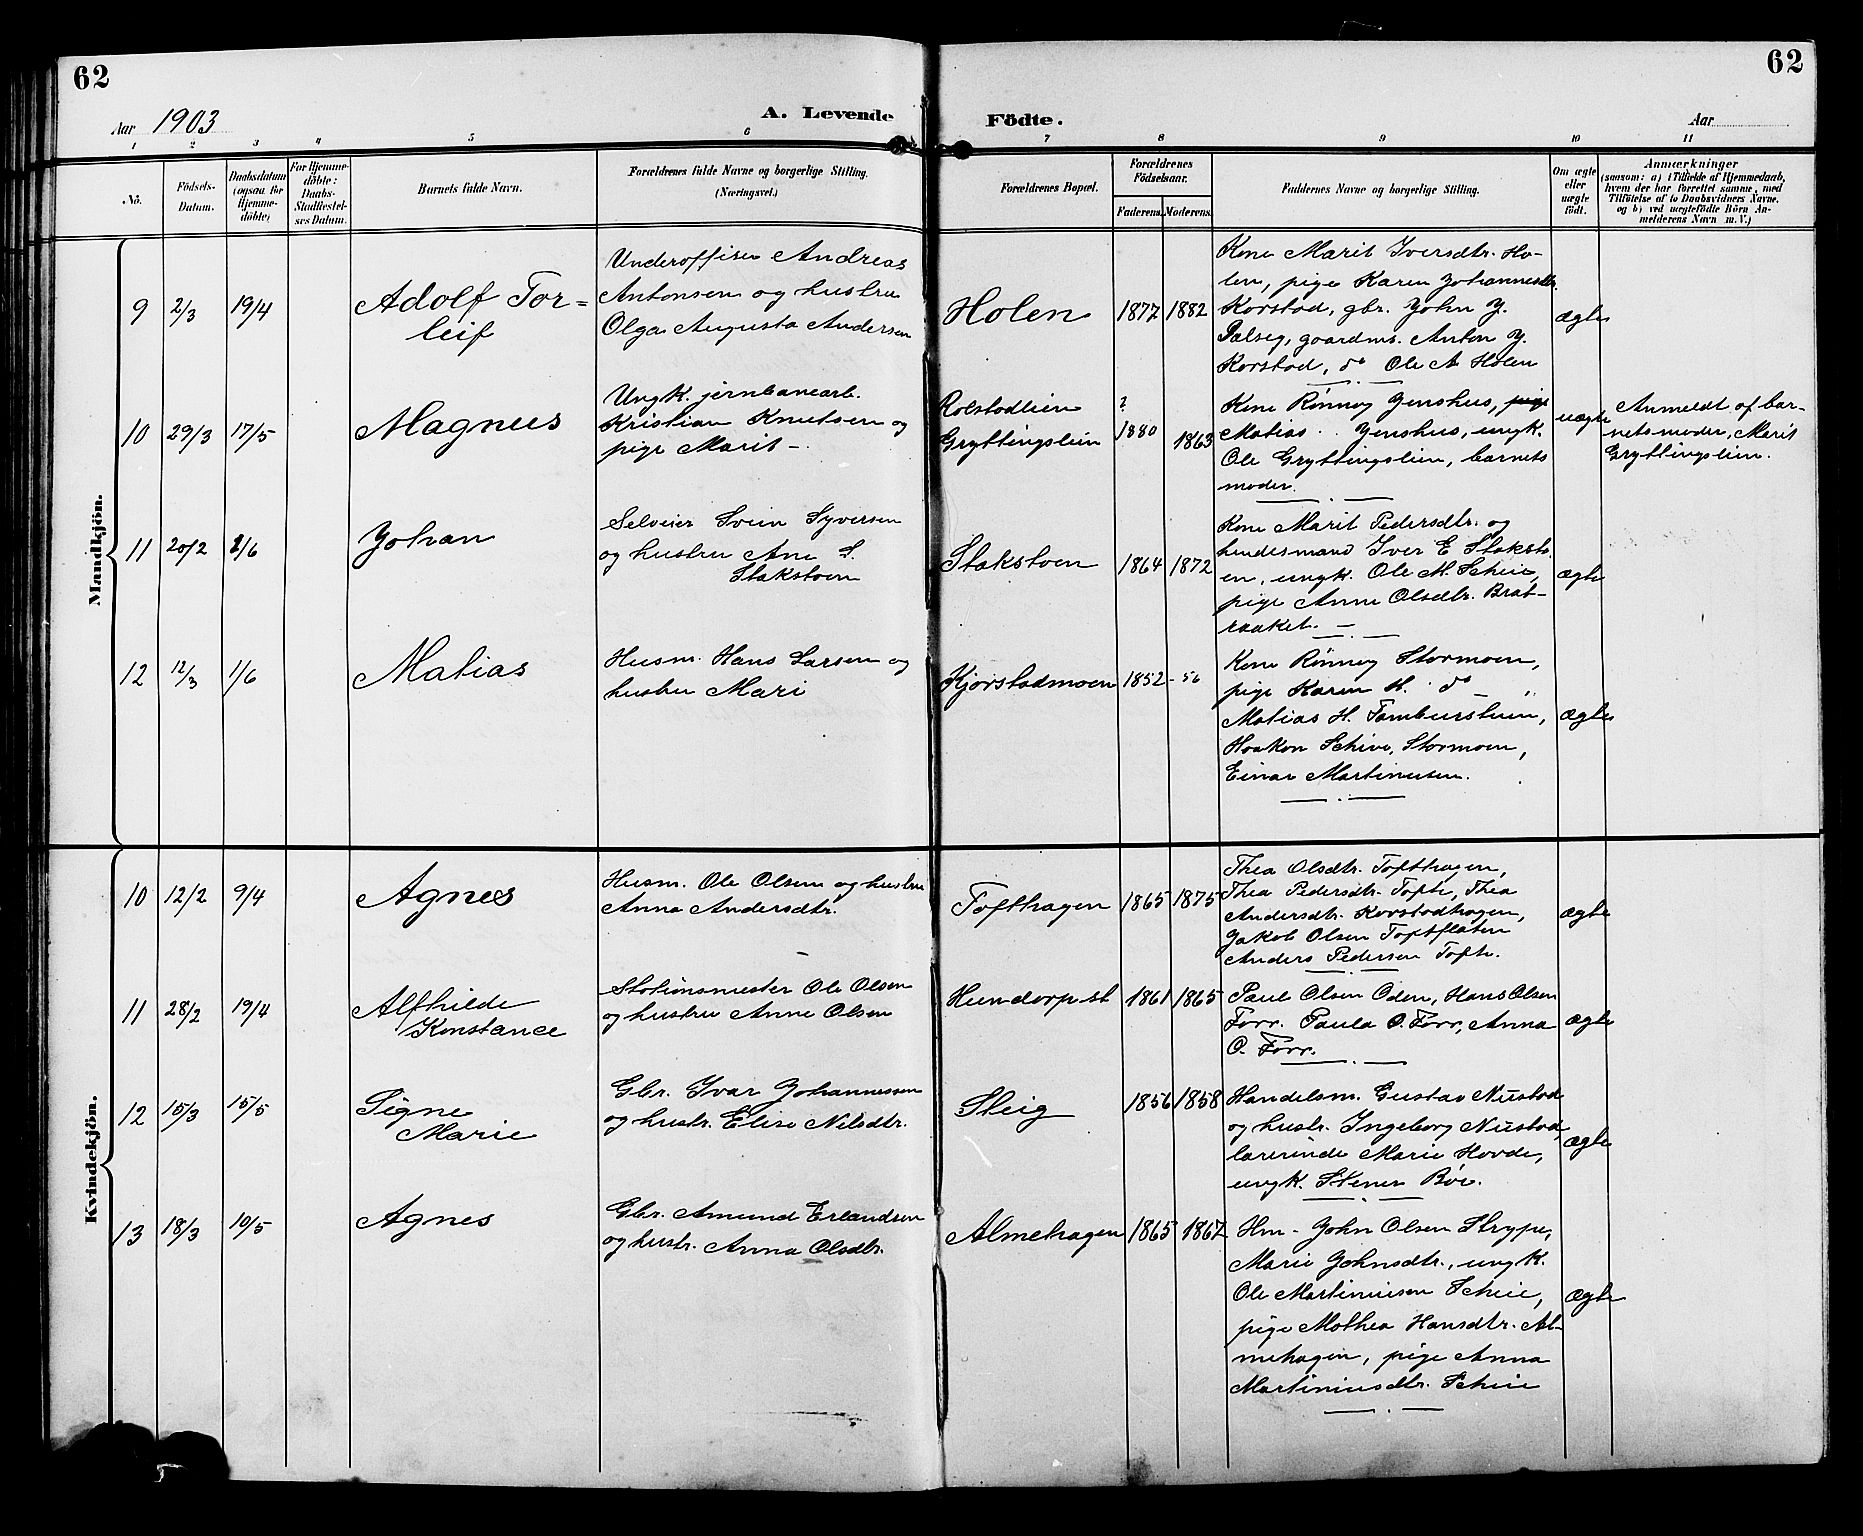 62
62
Aar 1903
A. Levende
Födte.
Aar
1 2 3 4 5 6 7 8 9 10 11
Nö.
Födsels-
Datum.
Daabsdatum
(ogsaa för
Hjemme-
döbte)
For Hjemme-
döbte:
Daabs-
Stadfæstel-
ses Datum.
Barnets fulde Navn.
Forældrenes fulde Navne og borgerlige Stilling.
(Næringsvei.)
Forældrenes Bopæl.
Forældrenes
Födselsaar.
Faderens. Moderens.
Faddernes Navne og borgerlige Stilling.
Om ægte
eller
uægte
födt.
Anmærkninger
(saasom: a) i Tilfælde af Hjemmedaab,
hvem der har forrettet samme, med
Tilföielse af to Daabsvidners Navne,
og b) ved uægtefödte Börn An-
melderens Navn m. V.)
Mandkjön.
9 2/3 19/4
Adolf Tor-
leif
Underoffiser Andreas
Antonsen og hustru
Olga Augusta Andersen
Holen
1877 1882
Kone Marit Iversdtr. Ho-
len, pige Karen Johannesdtr.
Korstad, gbr. John J.
goardmr. Anton J.
Korstad, do Ole A Holen
ægte
10 29/3 17/5
Magnus
Ungk. jernbanearb.
Kristian Knutsen og
pige Marit -
Rolstadlien
Gryttingslien
?
1880 1863
Kone Rønnog Jenshus, pige
Matias .. Jenshus, ungk.
Ole Gryttingslien, barnets
moder.
uægte
Anmeldt af bar-
nets moder, Marit
Gryttingslien.
11 20/2 1/6
Johan
Selveier Svein Syversen
og hustru Ane S.
Stakstoen
Stakstoen
1864 1872
Kone Marit Pedersdtr. og
hendes mand Iver E Staksto-
en, ungk. Ole M. Scheie,
pige Anne Olsdtr. Brat-
raaket. -
ægte
12 12/3 1/6
Matias
Husm. Hans Larsen og
hustru Mari
Kjorstadmoen
1852 - 56
Kone Rønnog Stormoen,
pige Karen H. do - "
Matias H. Tamburstuen,
Haakon Schive, Stormoen,
Einar Martinusen.
ægte
Kvindekjön.
10 12/2 9/4
Agnes
Husm. Ole Olsen og hustru
Anna Andersdtr.
Tofthagen
1865 1875
Thea Olsdtr. Tofthagen,
Thea Pedersdtr. Tofte, Thea
Andersdtr. Korstadhagen,
Jakob Olsen Toftflaten
Anders Pedersen Tofte.
ægte
11 28/2 19/4
Alfhilde
Konstance
Stationsmester Ole Olsen
og hustru Anne Olsen
Hundorp st
1861 1865
Paul Olsen Oden, Hans Olsen
Forr. Paula O. Forr, Anna
O. Forr.
ægte
12 15/3 15/5
Signe
Marie
Gbr. Ivar Johannessen
og hustr. Elise Nilsdtr.
Steig
1856 1858
Handelsm. Gustav Nustad
og hustr. Ingeborg Nustad,
lærerinde Marie Hovde,
ungk. Stener Bøe.
ægte
13 18/3 10/5
Agnes
Gbr. Amund Erlandsen
og hustr. Anna Olsdtr.
Almehagen
1865 1867
Hm - John Olsen Strype,
Marie Johnsdtr., ungk.
Ole Martiniusen Scheie,
pige Mathea Hansdtr. Al-
mehagen, pige Anna
Martiniusdtr. Scheie
ægte